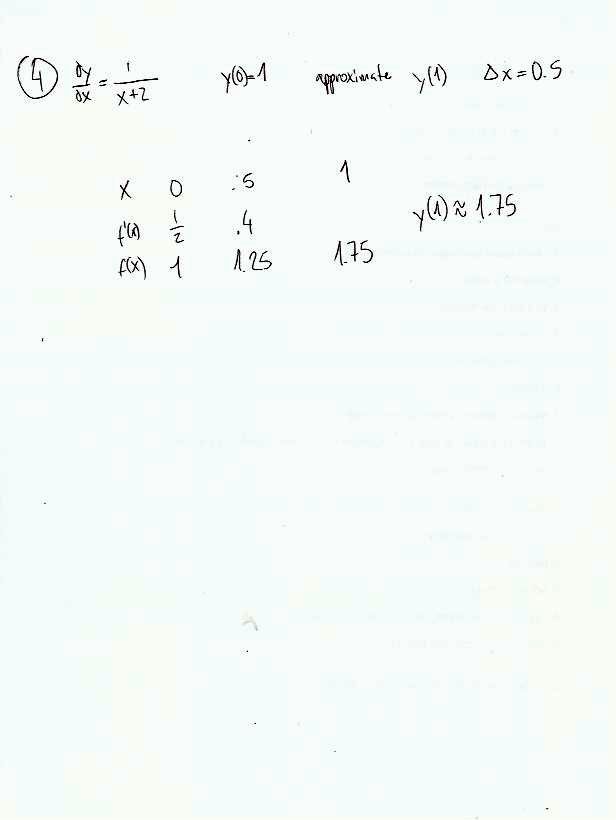 ④ dy/dx = 1/(x+2) y(0)=1 approximate y(1) Δx=0.5
x 0 .5 1
f'(x) 1/2 .4
y(1)≈1.75
f(x) 1 1.25 1.75